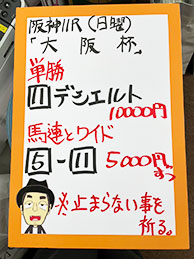 阪神11R(日曜)
「大阪杯」
単勝
11デシエルト
10000円
馬連とワイド
5-11 5000円
ずつ
※止まらない事を
祈る。